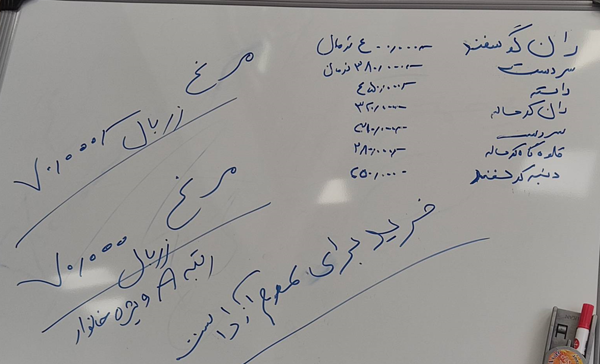 ران گوسفند ۴۰۰،۰۰۰ تومان
سردست ۳۸۰،۰۰۰ تومان
راسته ۴۵۰،۰۰۰
ران گوساله ۳۲۰،۰۰۰
سردست
قلوه گاه گوساله ۲۸۰،۰۰۰
دنبه گوسفند ۲۵۰،۰۰۰
مرغ
زربال ۷۰،۰۰۰
مرغ
زربال ۷۰،۰۰۰
رتبه A ویژه خانوار
خرید برای عموم آزاد است